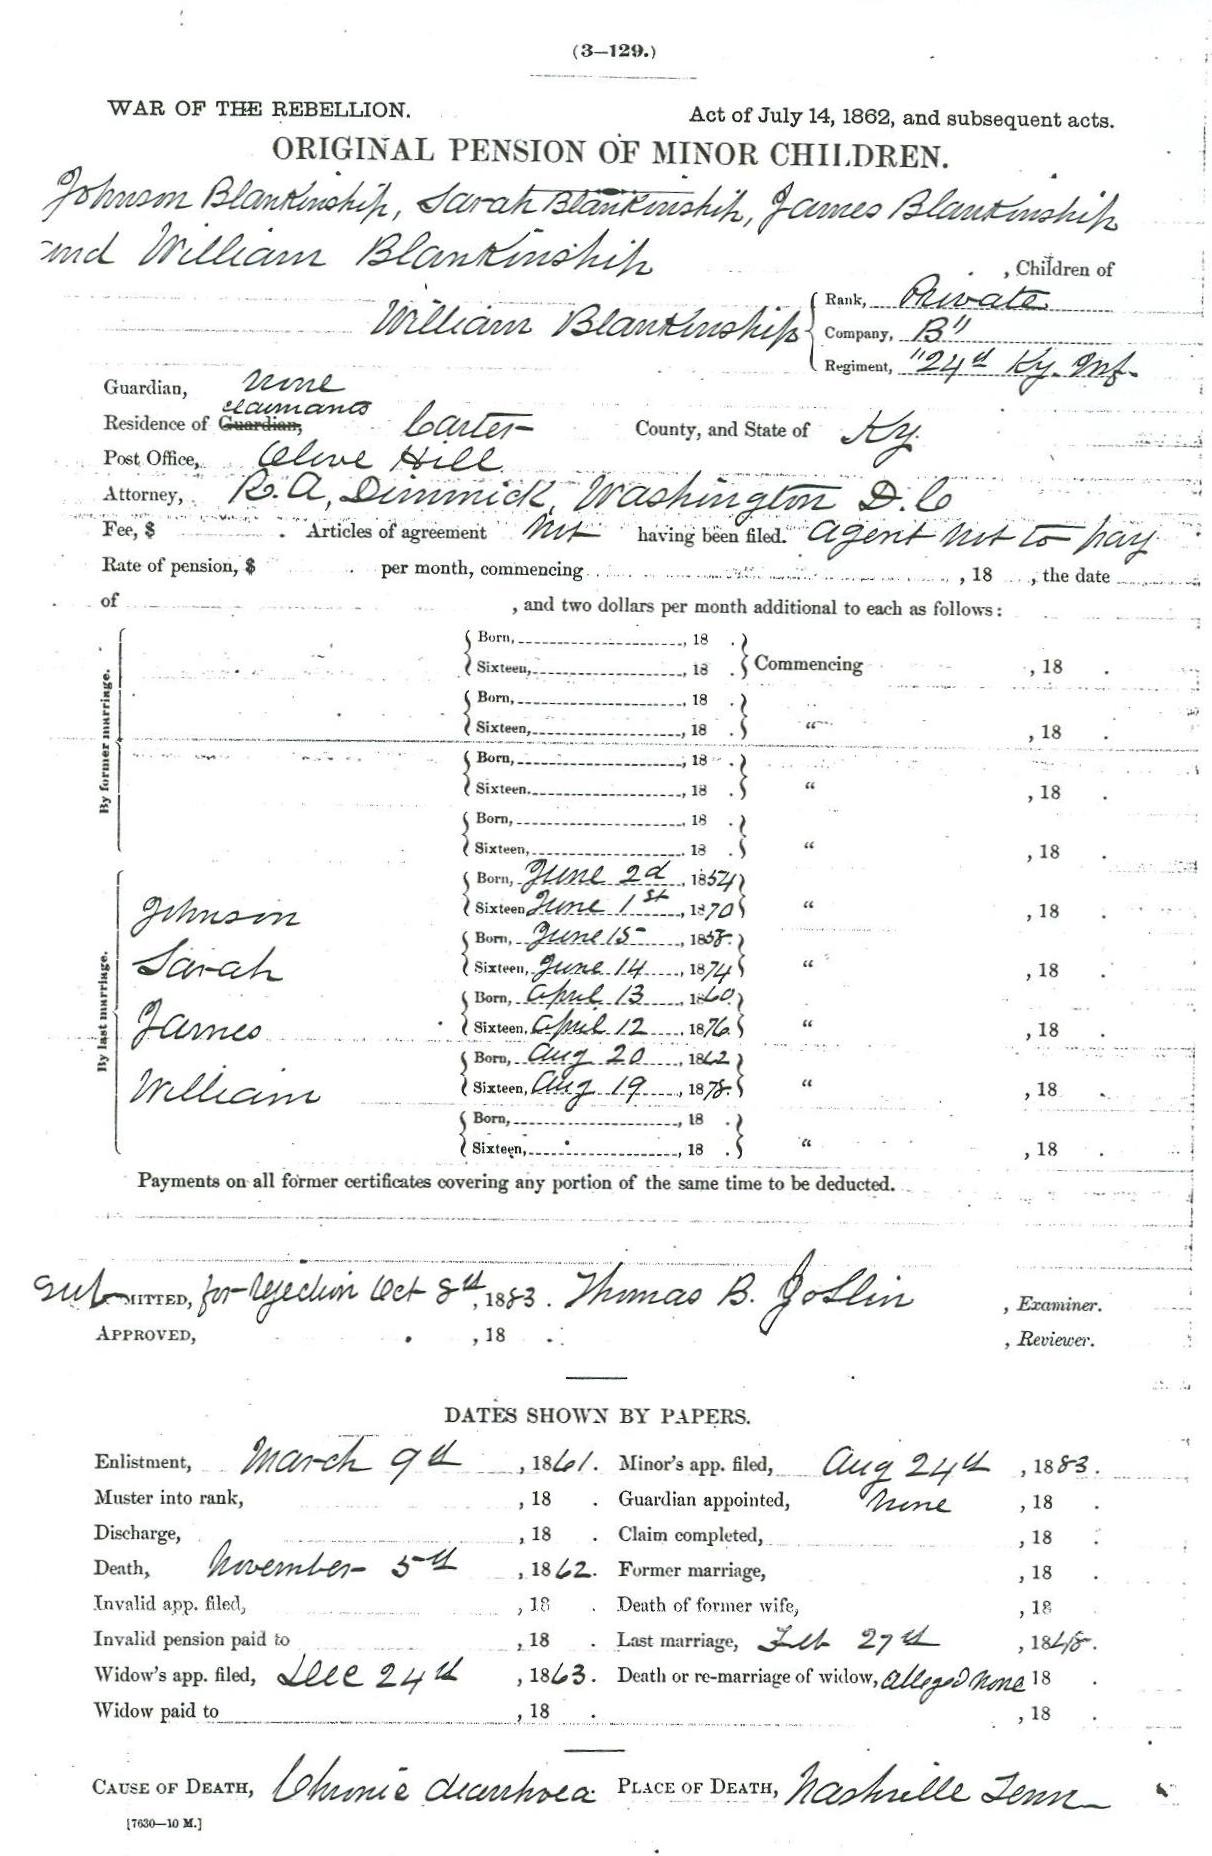 (3–129.)
WAR OF THE REBELLION. Act of July 14, 1862, and subsequent acts.
ORIGINAL PENSION OF MINOR CHILDREN.
Johnson Blankinship, Sarah Blankinship, James Blankinship
and William Blankinship , Children of
William Blankinship
Rank, Private
Company, B"
Regiment, "24th Ky. Inf.
Guardian, None
claimants
Residence of Guardian, Carter County, and State of Ky.
Post Office, Olive Hill
Attorney, R. A. Dimmick, Washington D. C
Fee, $ . Articles of agreement not having been filed. Agent not to pay
Rate of pension, $ . per month, commencing , 18 , the date
of , and two dollars per month additional to each as follows:
By former marriage.
Born, , 18 .
Sixteen, , 18 . Commencing , 18 .
Born, , 18 .
Sixteen, , 18 . " , 18 .
Born, , 18 .
Sixteen, , 18 . " , 18 .
Born, , 18 .
Sixteen, , 18 . " , 18 .
By last marriage.
Born, June 2d , 1854
Johnson Sixteen June 1st , 1870 " , 18 .
Born, June 15 , 1858.
Sarah Sixteen, June 14 , 1874 " , 18 .
Born, April 13 , 1860.
James Sixteen, April 12 , 1876. " , 18 .
Born, Aug 20 , 1862
William Sixteen, Aug 19 , 1878. " , 18 .
Born, , 18 .
Sixteen, , 18 . " , 18 .
Payments on all former certificates covering any portion of the same time to be deducted.
SubMITTED, for rejection Oct 8th, 1883. Thomas B. Joslin , Examiner.
APPROVED, , 18 . , Reviewer.
DATES SHOWN BY PAPERS.
Enlistment, March 9th , 1861. Minor's app. filed, Aug 24th , 1883.
Muster into rank, , 18 . Guardian appointed, None , 18 .
Discharge, , 18 . Claim completed, , 18 .
Death, November 5th , 1862. Former marriage, , 18 .
Invalid app. filed, , 18 . Death of former wife, , 18
Invalid pension paid to , 18 . Last marriage, Feb 27th , 1848.
Widow's app. filed, Dec 24th , 1863. Death or re-marriage of widow, alleged None 18 .
Widow paid to , 18 . , 18 .
CAUSE OF DEATH, Chronic diarrhoea. PLACE OF DEATH, Nashville Tenn
[7630—10 M.]